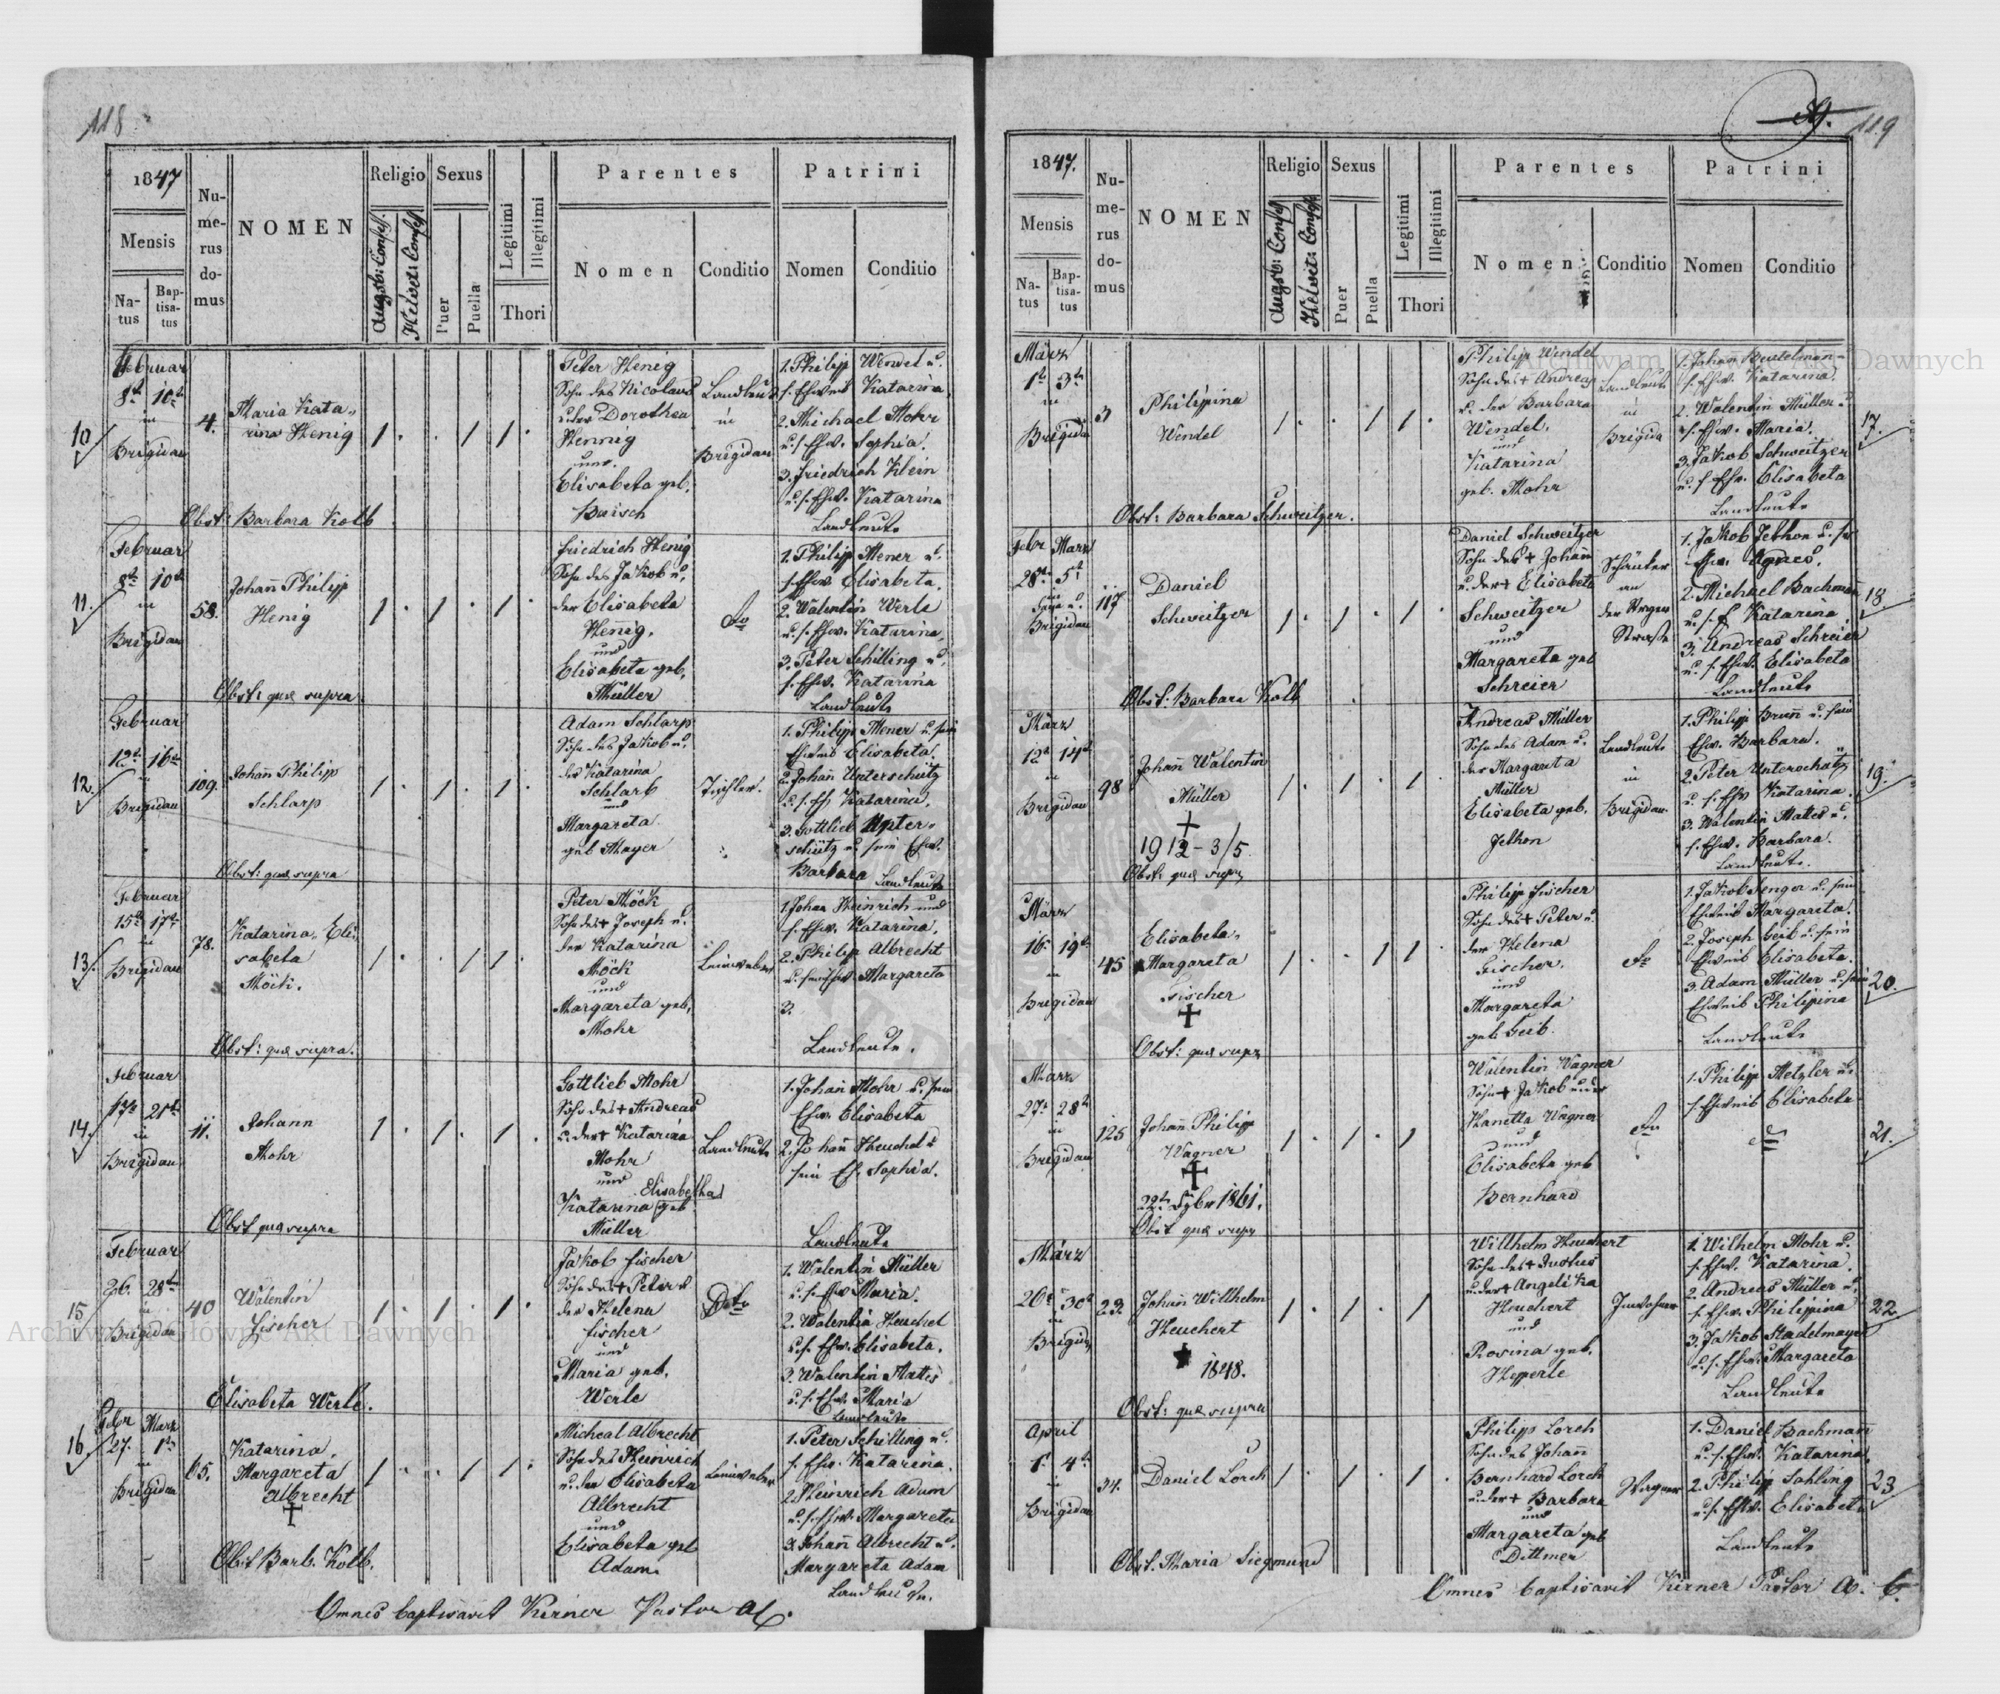 118
1847
Mensis
Natus
Baptisatus
Numerus domus
NOMEN
Religio
Augsb: Confess.
Helvet: Confess
Sexus
Puer
Puella
Legitimi
Illegitimi
Thori
Parentes
Nomen
Conditio
Patrini
Nomen
Conditio
10
Februar
8t 10t
in
Brigidau
4.
Maria Kata-
rina Henig
Obst: Barbara Kolb
Peter Henig
Sohn des Nicolaus
u. der Dorothea
Hennig
und
Elisabeta geb.
Baisch
Landleute
in
Brigidau
1. Philipp Wendel u.
s. Ehweib Katarina
2. Michael Mohr
u. s. Ehw. Sophia.
3. Friedrich Klein
u. s. Ehw. Katarina
Landleute
11.
Februar
8t 10t
in
Brigidau
58.
Johan̄ Philipp
Henig
Obst: quæ supra
Friedrich Henig
Sohn des Jakob u.
der Elisabeta
Hen̄ig.
und
Elisabeta geb.
Müller
do
1. Philipp Mener u.
s. Ehw. Elisabeta.
2. Walentin Werle
u. s. Ehw. Katarina
3. Peter Schilling u.
s. Ehw. Katarina
Landleute
12.
Februar
12t 16t
in
Brigidau
109.
Johan̄ Philipp
Schlarp
Obst: quæ supra
Adam Schlarp
Sohn des Jakob u.
der Katarina
Schlarb
und
Margareta
geb Mayer
Tischler.
1. Philipp Mener u. sein
Ehweib Elisabeta.
2. Johan̄ Unterschütz
u. s. Eh Katarina.
3. Gottlieb Unter-
schütz u. sein Ehw.
Barbara Landleute
13.
Februar
15t 17t
in
Brigidau
78.
Katarina Eli-
sabeta
Möck.
Obst: quæ supra.
Peter Möck
Sohn des + Joseph u.
der Katarina
Möck
und
Margareta geb.
Mohr
Leinweber
1. Johan Heinrich und
s. Ehw. Katarina.
2. Philip Albrecht
u. sein Ehw Margareta
3.
Landleute.
14.
Februar
17t 21t
in
Brigidau
11.
Johann
Mohr
Obst quæ supra
Gottlieb Mohr
Sohn des + Andreas
u. der + Katarina
Mohr
und
Elisabetha
Katarina geb
Müller
Landleute
1. Johan̄ Mohr u. sein
Ehw. Elisabeta
2. Johan̄ Heuchel u
sein Eh. Sophia.
Landleute
15
Februar
26. 28t
in
Brigidau
40
Walentin
Fischer
Elisabeta Werle.
Jakob Fischer
Sohn des + Peter u
der Helena
Fischer
und
Maria geb.
Werle
Deto
1. Walentin Müller
u. s. Ehw Maria.
2. Walentin Heuchel
u. s. Ehw. Elisabeta.
3. Walentin Mattes
u. s. Ehw. Maria
Landleute
16
Febr März
27. 1t
in
Brigidau
65.
Katarina
Margareta
Albrecht
†
Obst Barb. Kolb.
Micheal Albrecht
Sohn des Heinrich
u. der Elisabeta
Albrecht
und
Elisabeta geb
Adam.
Leinweber
1. Peter Schilling u.
s. Ehw. Katarina.
2. Heinrich Adam
u. s. Ehw. Margareta
3. Johan̄ Albrecht u.
Margareta Adam
Landleute.
Omnes baptisavit Kirner Pastor
119
1847.
Mensis
Natus
Baptisatus
Numerus domus
NOMEN
Religio
Augsb: Confess
Helvet: Confess
Sexus
Puer
Puella
Legitimi
Illegitimi
Thori
Parentes
Nomen
Conditio
Patrini
Nomen
Conditio
März
1t 3t
in
Brigidau
3
Philippina
Wendel
Obst: Barbara Schweitzer.
Philipp Wendel
Sohn des + Andreas
u. der Barbara
Wendel.
und
Katarina
geb. Mohr
Landleute
in
Brigida
s. Ehw. Katarina.
2. Walentin Müller u.
s. Ehw. Maria.
3. Jakob Schweitzer
u. s. Ehw. Elisabeta
Landleute
17.
Febr März
28t 5t
in
Brigidau
117
Daniel
Schweitzer
Obst: Barbara Kolb
Daniel Schweitzer
Sohn des + Johan̄
u. der + Elisabeta
Schweitzer
und
Margareta geb
Schreier
an
der
Strasse
1. Jakob Jethon u. sn
Ehw. Agnes.
2. Michael Bachman̄
u. s. E Katarina
3. Andreas Schreier
u. s. Ehw. Elisabeta
Landleute
18.
März
12t 14t
in
Brigidau
98
Johan̄ Walentin
Müller
†
1912 - 3/5.
Obst: quæ supra
Andreas Müller
Sohn des Adam u.
der Margareta
Müller
Elisabeta geb.
Jethon
Landleute
in
Brigidau
1. Philipp Brun̄ u. sein
Ehw. Barbara.
2. Peter Unterschatz
u. s. Ehw Katarina.
3. Walentin Mattes u.
s. Ehw. Barbara.
Landleute.
19.
März
16t 19t
in
Brigidau
45
Elisabeta
Margareta
Fischer
†
Obst: quæ supra
Philipp Fischer
Sohn des + Peter u.
der Helena
Fischer.
und
Margareta
geb. Geib.
do
1. Jakob Senger u. sein
Ehweib Margareta.
2. Joseph Geib u. sein
Ehweib Elisabeta.
3. Adam Müller u. sein
Ehweib Philipina
Landleute
20.
März
27t 28t
in
Brigidau
125
Johan̄ Philipp
Wagner
†
22t 1861.
Obst quæ supra
Walentin Wagner
Sohn + Jakob u. der
Hanetta Wagner
und
Elisabeta geb
Bernhard
do
1. Philipp Metzler u.
s. Ehweib Elisabeta
21.
März
20t 30t
in
Brigidau
22.
Johan̄ Willhelm
Heuchert
†
1848.
Obst: quæ supra
Willhelm Heuchert
Sohn des + Justus
u. der + Angelika
Heuchert
und
Rosina geb.
Hepperle
Inwohner
1. Wilhelm Mohr u.
s. Ehw. Katarina.
2. Andreas Müller u.
s. Ehw. Philippina
3. Jakob Stadelmayer
u. s. Ehw. Margareta
Landleute
22
April
1t 4t
in
Brigidau
34.
Daniel Lorch
Obst. Maria Siegmund
Philipp Lorch
Sohn des Johan̄
Bernhard Lorch
u. der + Barbara
und
Margareta geb
Dittmer
Wagner
1. Daniel Bachman̄
u. s. Ehw. Katarina
2. Philipp Sahling
u. s. Ehw. Elisabeta
Landleute
23
Omnes baptisavit Kirner Pastor A. C.
Archiwum Główne Akt Dawnych
Archiwum Główne Akt Dawnych